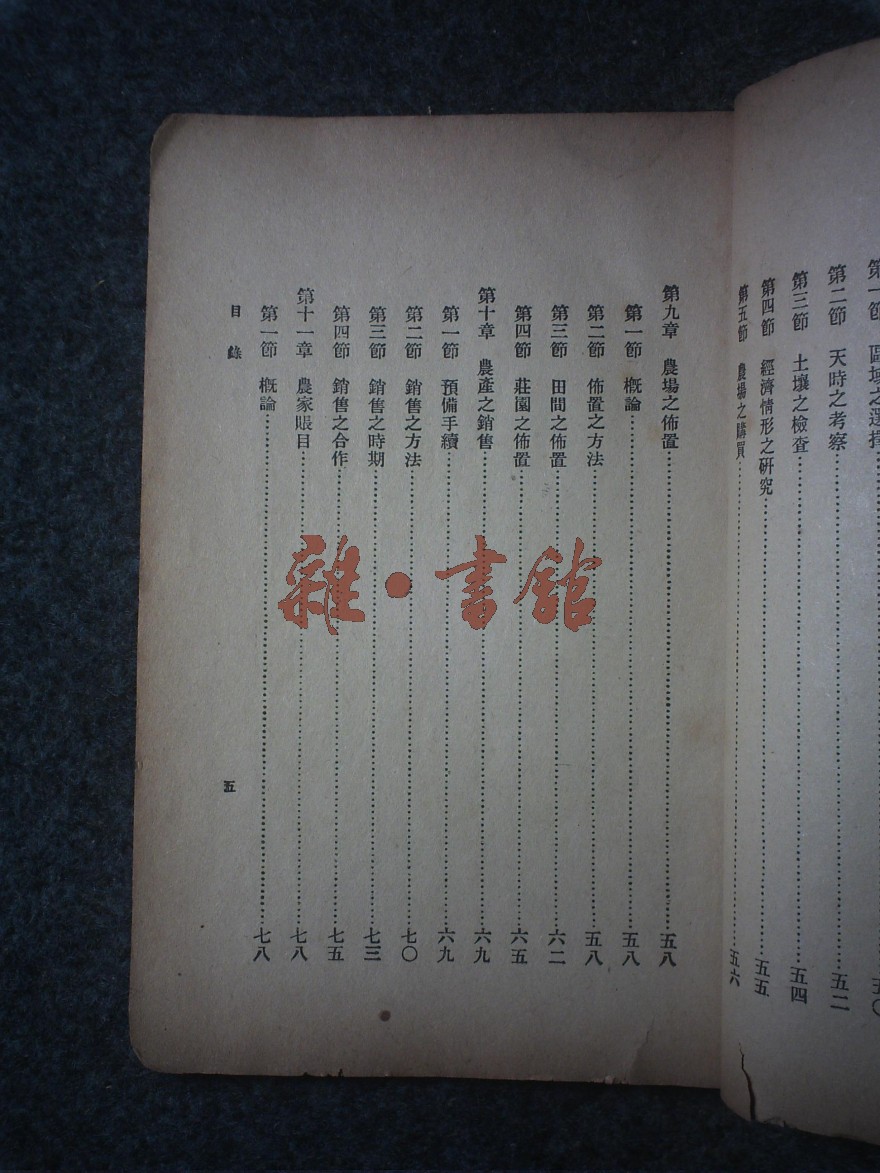 第一節　區域之選擇……五〇
第二節　天時之考察……五二
第三節　土壤之檢查……五四
第四節　經濟情形之研究……五五
第五節　農場之購買……五六
第九章　農場之佈置……五八
第一節　概論……五八
第二節　佈置之方法……五八
第三節　田間之佈置……六二
第四節　莊園之佈置……六五
第十章　農產之銷售……六九
第一節　預備手續……六九
第二節　銷售之方法……七〇
第三節　銷售之時期……七三
第四節　銷售之合作……七五
第十一章　農家賬目……七八
第一節　概論……七八
目錄
五
雜·書館